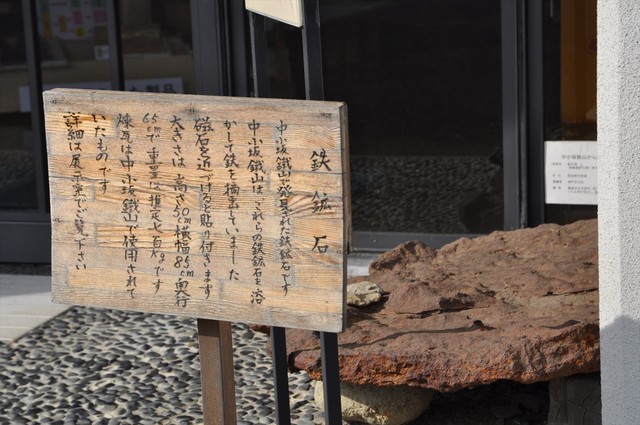 鉄鉱石
中小坂鐵山で発見された鉄鉱石です
中小坂鐵山は、これらの鉄鉱石を溶
かして鉄を抽出していました
磁石を近づけると貼り付きます
大きさは、高さ50cm横幅85cm奥行
65cmで重量は推定七百kgです
煉瓦は中小坂鐵山で使用されて
いたものです
詳細は展示室でご覧下さい
中小坂鉄山から